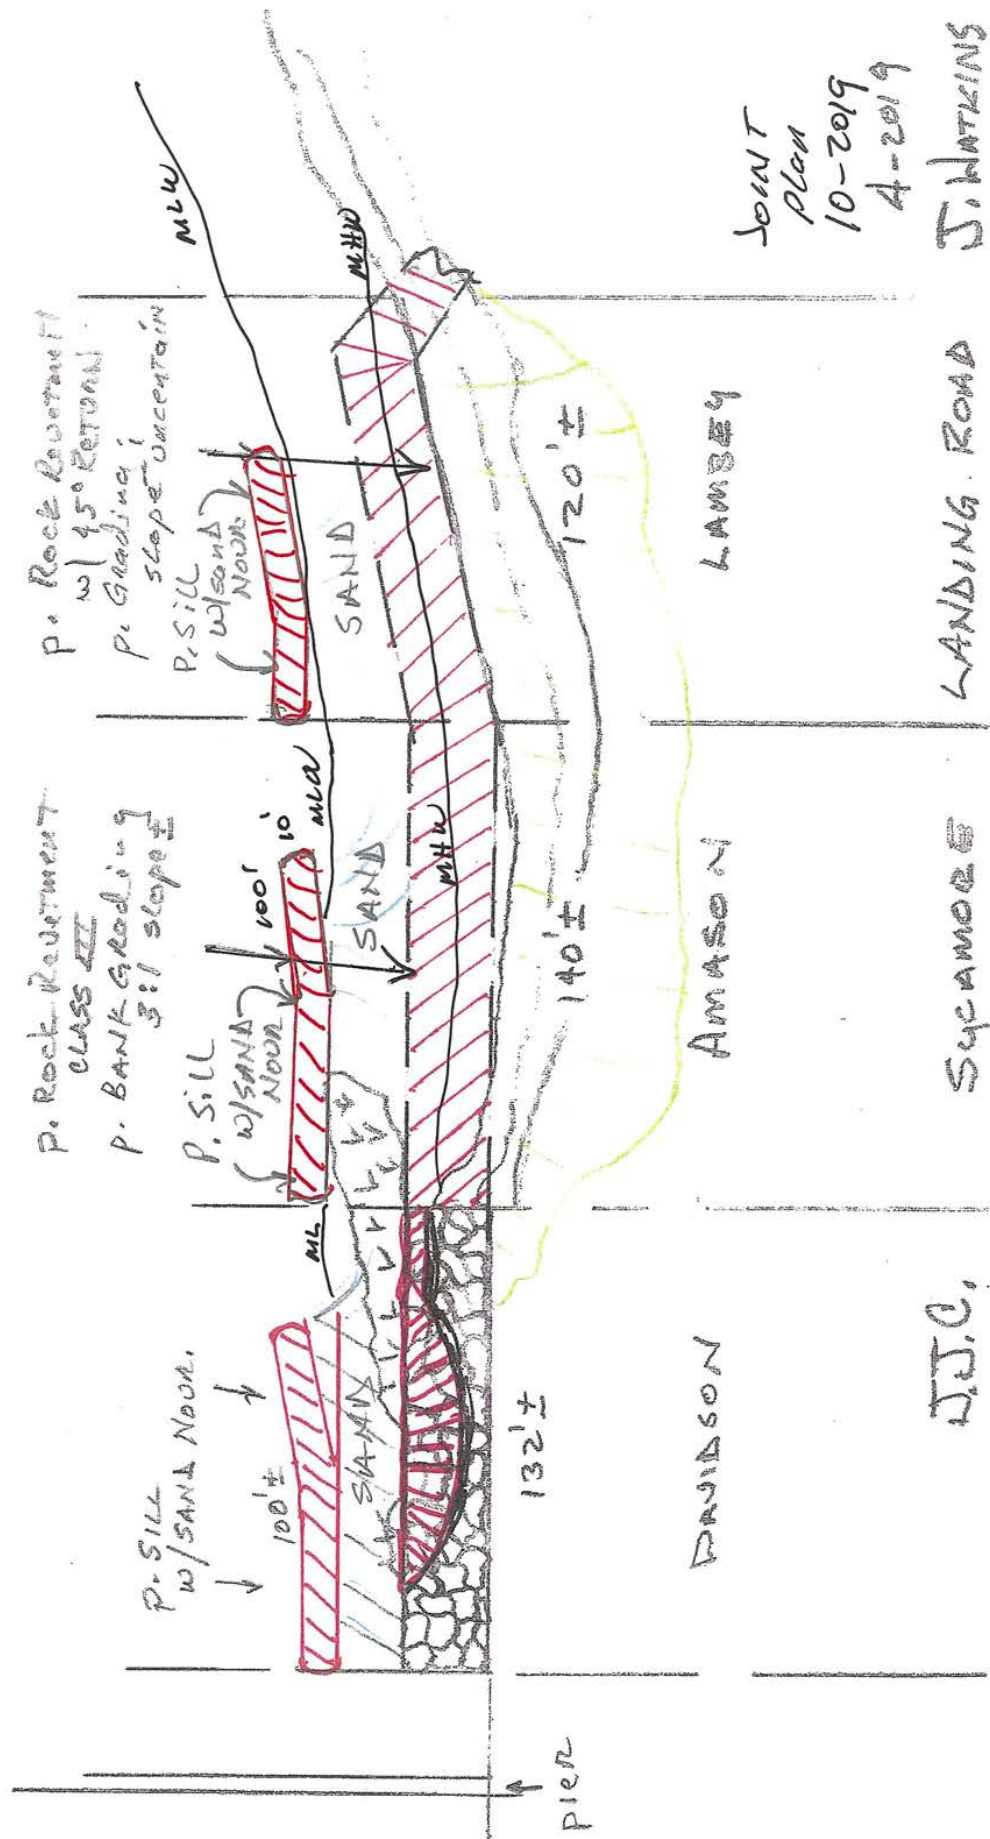 P. SILL
w/ SAND NOUR.
100'±
SAND
ML
132'±
DAVIDSON
J.J.C.
PIER
P. Rock Revetment
CLASS III
P. BANK Grading
3:1 slope ±
P. Sill
w/SAND
NOUR
100'
10'
MLW
SAND
MHW
140'±
AMASON
SYCAMORE
P. Rock Revetment
w/ 45° RETURN
P. Grading;
slope uncertain
P. Sill
w/sand
NOUR.
MLW
SAND
MHW
120'±
LAMBEY
LANDING ROAD
JOINT
Plan
10-2019
4-2019
J. WATKINS